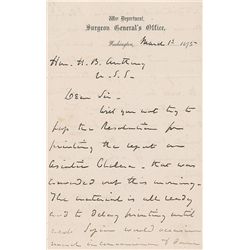 War Department,
Surgeon General's Office,
Washington, March 1st 1875
Hon. H. B. Anthony
U. S. S.
Dear Sir -
Will you not try to
pass the Resolution for
printing the report on
Asiatic Cholera - that was
amended out this morning.
The material is all ready
and to delay printing until
next Session would occasion
much inconvenience &